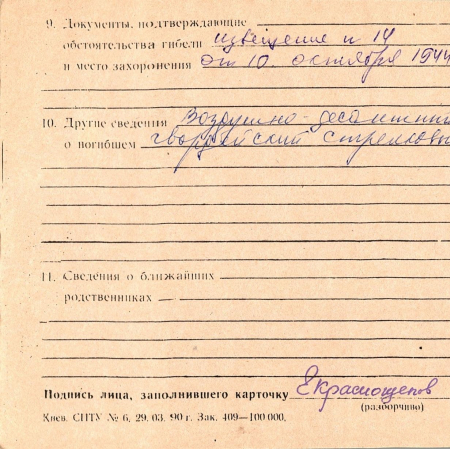 9. Документы, подтверждающие
обстоятельства гибели извещение п 14
и место захоронения от 10. октября 1944
10. Другие сведения Воздушно-десантный
о погибшем гвардейский стрелковы
11. Сведения о ближайших
родственниках
Подпись лица, заполнившего карточку ЕКраснощепов
(разборчиво)
Киев. СПТУ № 6, 29. 03. 90 г. Зак. 409—100 000.